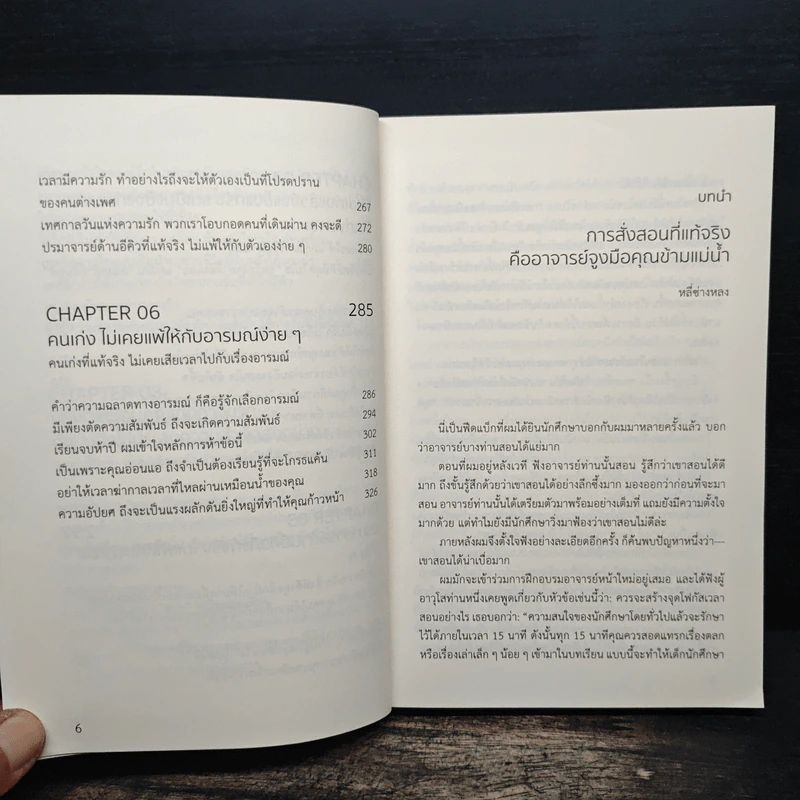 เวลามีความรัก ทำอย่างไรถึงจะให้ตัวเองเป็นที่โปรดปราน
ของคนต่างเพศ 267
เทศกาลวันแห่งความรัก พวกเราโอบกอดคนที่เดินผ่าน คงจะดี 272
ปรมาจารย์ด้านอีคิวที่แท้จริง ไม่แพ้ให้กับตัวเองง่าย ๆ 280
CHAPTER 06 285
คนเก่ง ไม่เคยแพ้ให้กับอารมณ์ง่าย ๆ
คนเก่งที่แท้จริง ไม่เคยเสียเวลาไปกับเรื่องอารมณ์
คำว่าความฉลาดทางอารมณ์ ก็คือรู้จักเลือกอารมณ์ 286
มีเพียงตัดความสัมพันธ์ ถึงจะเกิดความสัมพันธ์ 294
เรียนจบห้าปี ผมเข้าใจหลักการห้าข้อนี้ 302
เป็นเพราะคุณอ่อนแอ ถึงจำเป็นต้องเรียนรู้ที่จะโกรธแค้น 311
อย่าให้เวลาฆ่ากาลเวลาที่ไหลผ่านเหมือนน้ำของคุณ 318
ความอัปยศ ถึงจะเป็นแรงผลักดันยิ่งใหญ่ที่ทำให้คุณก้าวหน้า 326
6
บทนำ
การสั่งสอนที่แท้จริง
คืออาจารย์จูงมือคุณข้ามแม่น้ำ
หลี่ซ่างหลง
นี่เป็นฟีดแบ็กที่ผมได้ยินนักศึกษาบอกกับผมมาหลายครั้งแล้ว บอก
ว่าอาจารย์บางท่านสอนได้แย่มาก
ตอนที่ผมอยู่หลังเวที ฟังอาจารย์ท่านนั้นสอน รู้สึกว่าเขาสอนได้ดี
มาก ถึงขั้นรู้สึกด้วยว่าเขาสอนได้อย่างลึกซึ้งมาก มองออกว่าก่อนที่จะมา
สอน อาจารย์ท่านนั้นได้เตรียมตัวมาพร้อมอย่างเต็มที่ แถมยังมีความตั้งใจ
มากด้วย แต่ทำไมยังมีนักศึกษาวิ่งมาฟ้องว่าเขาสอนไม่ดีล่ะ
ภายหลังผมจึงตั้งใจฟังอย่างละเอียดอีกครั้ง ก็ค้นพบปัญหาหนึ่งว่า---
เขาสอนได้น่าเบื่อมาก
ผมมักจะเข้าร่วมการฝึกอบรมอาจารย์หน้าใหม่อยู่เสมอ และได้ฟังผู้
อาวุโสท่านหนึ่งเคยพูดเกี่ยวกับหัวข้อเช่นนี้ว่า: ควรจะสร้างจุดโฟกัสเวลา
สอนอย่างไร เธอบอกว่า: “ความสนใจของนักศึกษาโดยทั่วไปแล้วจะรักษา
ไว้ได้ภายในเวลา 15 นาที ดังนั้นทุก 15 นาทีคุณควรสอดแทรกเรื่องตลก
หรือเรื่องเล่าเล็ก ๆ น้อย ๆ เข้ามาในบทเรียน แบบนี้จะทำให้เด็กนักศึกษา